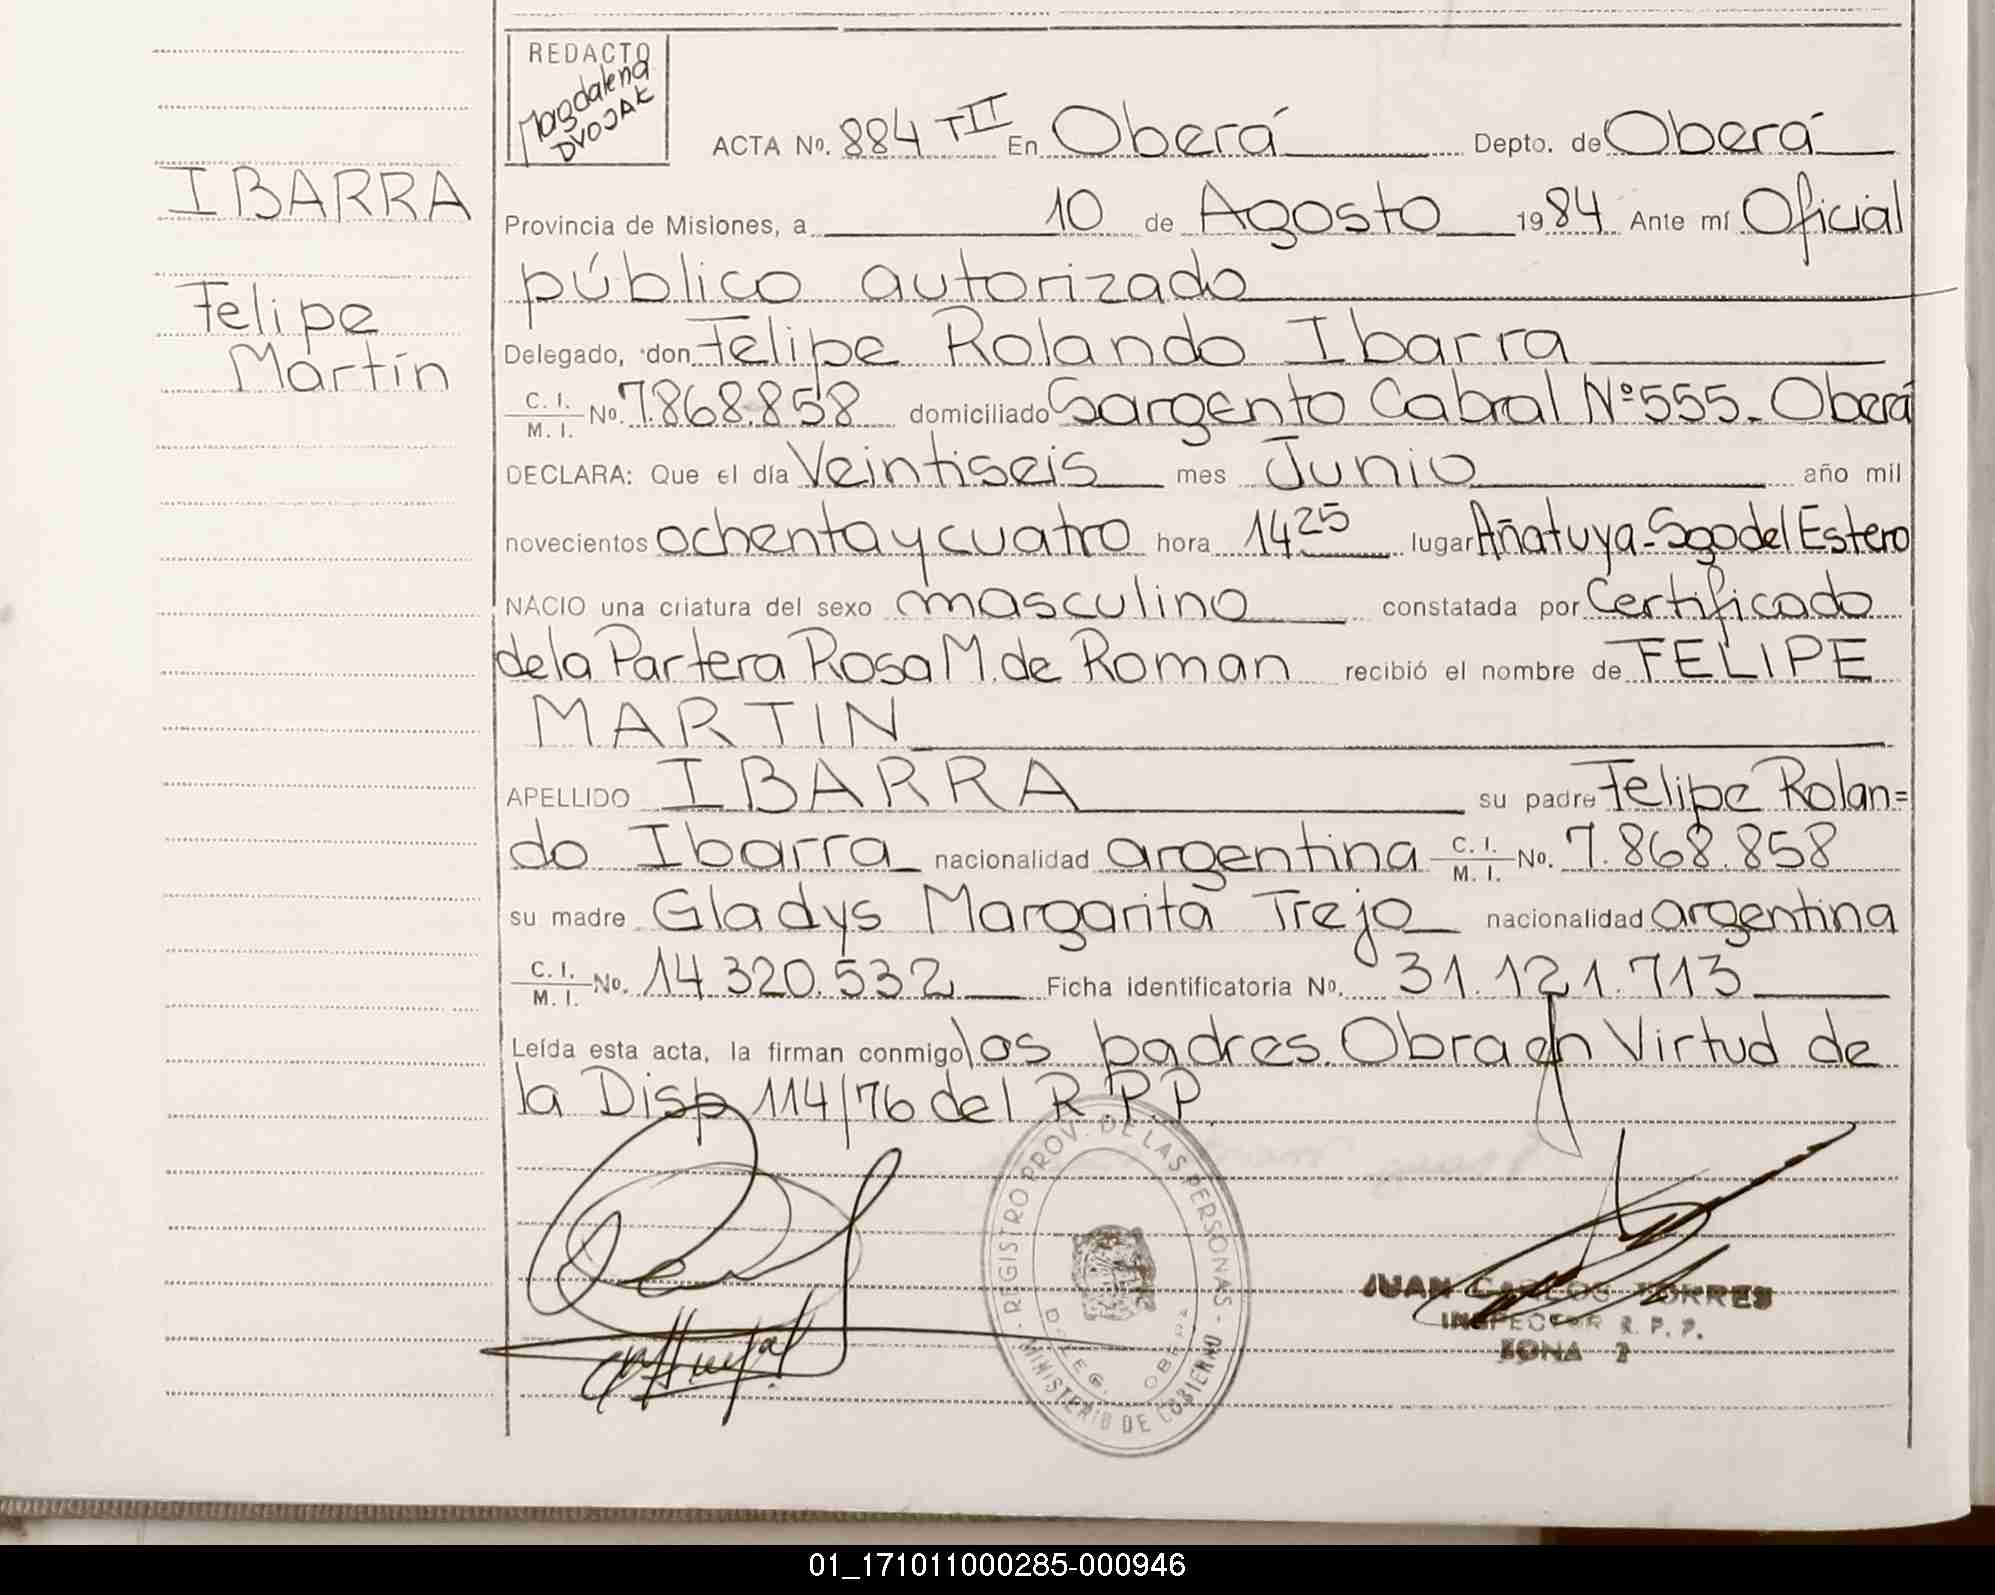 REDACTO
Magdalena
DVOJAK
ACTA Nº. 884 TII En Oberá Depto. de Oberá
IBARRA
Provincia de Misiones, a 10 de Agosto 1984 Ante mí Oficial
público autorizado
Felipe
Martín
Delegado, don Felipe Rolando Ibarra
C. I. / M. I. Nº. 7.868.858 domiciliado Sargento Cabral Nº 555.- Oberá
DECLARA: Que el día Veintiseis mes Junio año mil
novecientos ochenta y cuatro hora 14 25 lugar Añatuya - Sgo del Estero
NACIO una criatura del sexo masculino constatada por Certificado
de la Partera Rosa M. de Roman recibió el nombre de FELIPE
MARTIN
APELLIDO IBARRA su padre Felipe Rolan=
do Ibarra nacionalidad argentina C. I. / M. I. Nº. 7.868.858
su madre Gladys Margarita Trejo nacionalidad argentina
C. I. / M. I. Nº. 14.320.532 Ficha identificatoria Nº. 31.121.713
Leída esta acta, la firman conmigo los padres. Obra en Virtud de
la Disp 114/76 del R.P.P.
REGISTRO PROV. DE LAS PERSONAS - MINISTERIO DE GOBIERNO -
DELEG. OBERA
JUAN CARLOS TORRES
INSPECTOR R. P. P.
ZONA 2
01_171011000285-000946